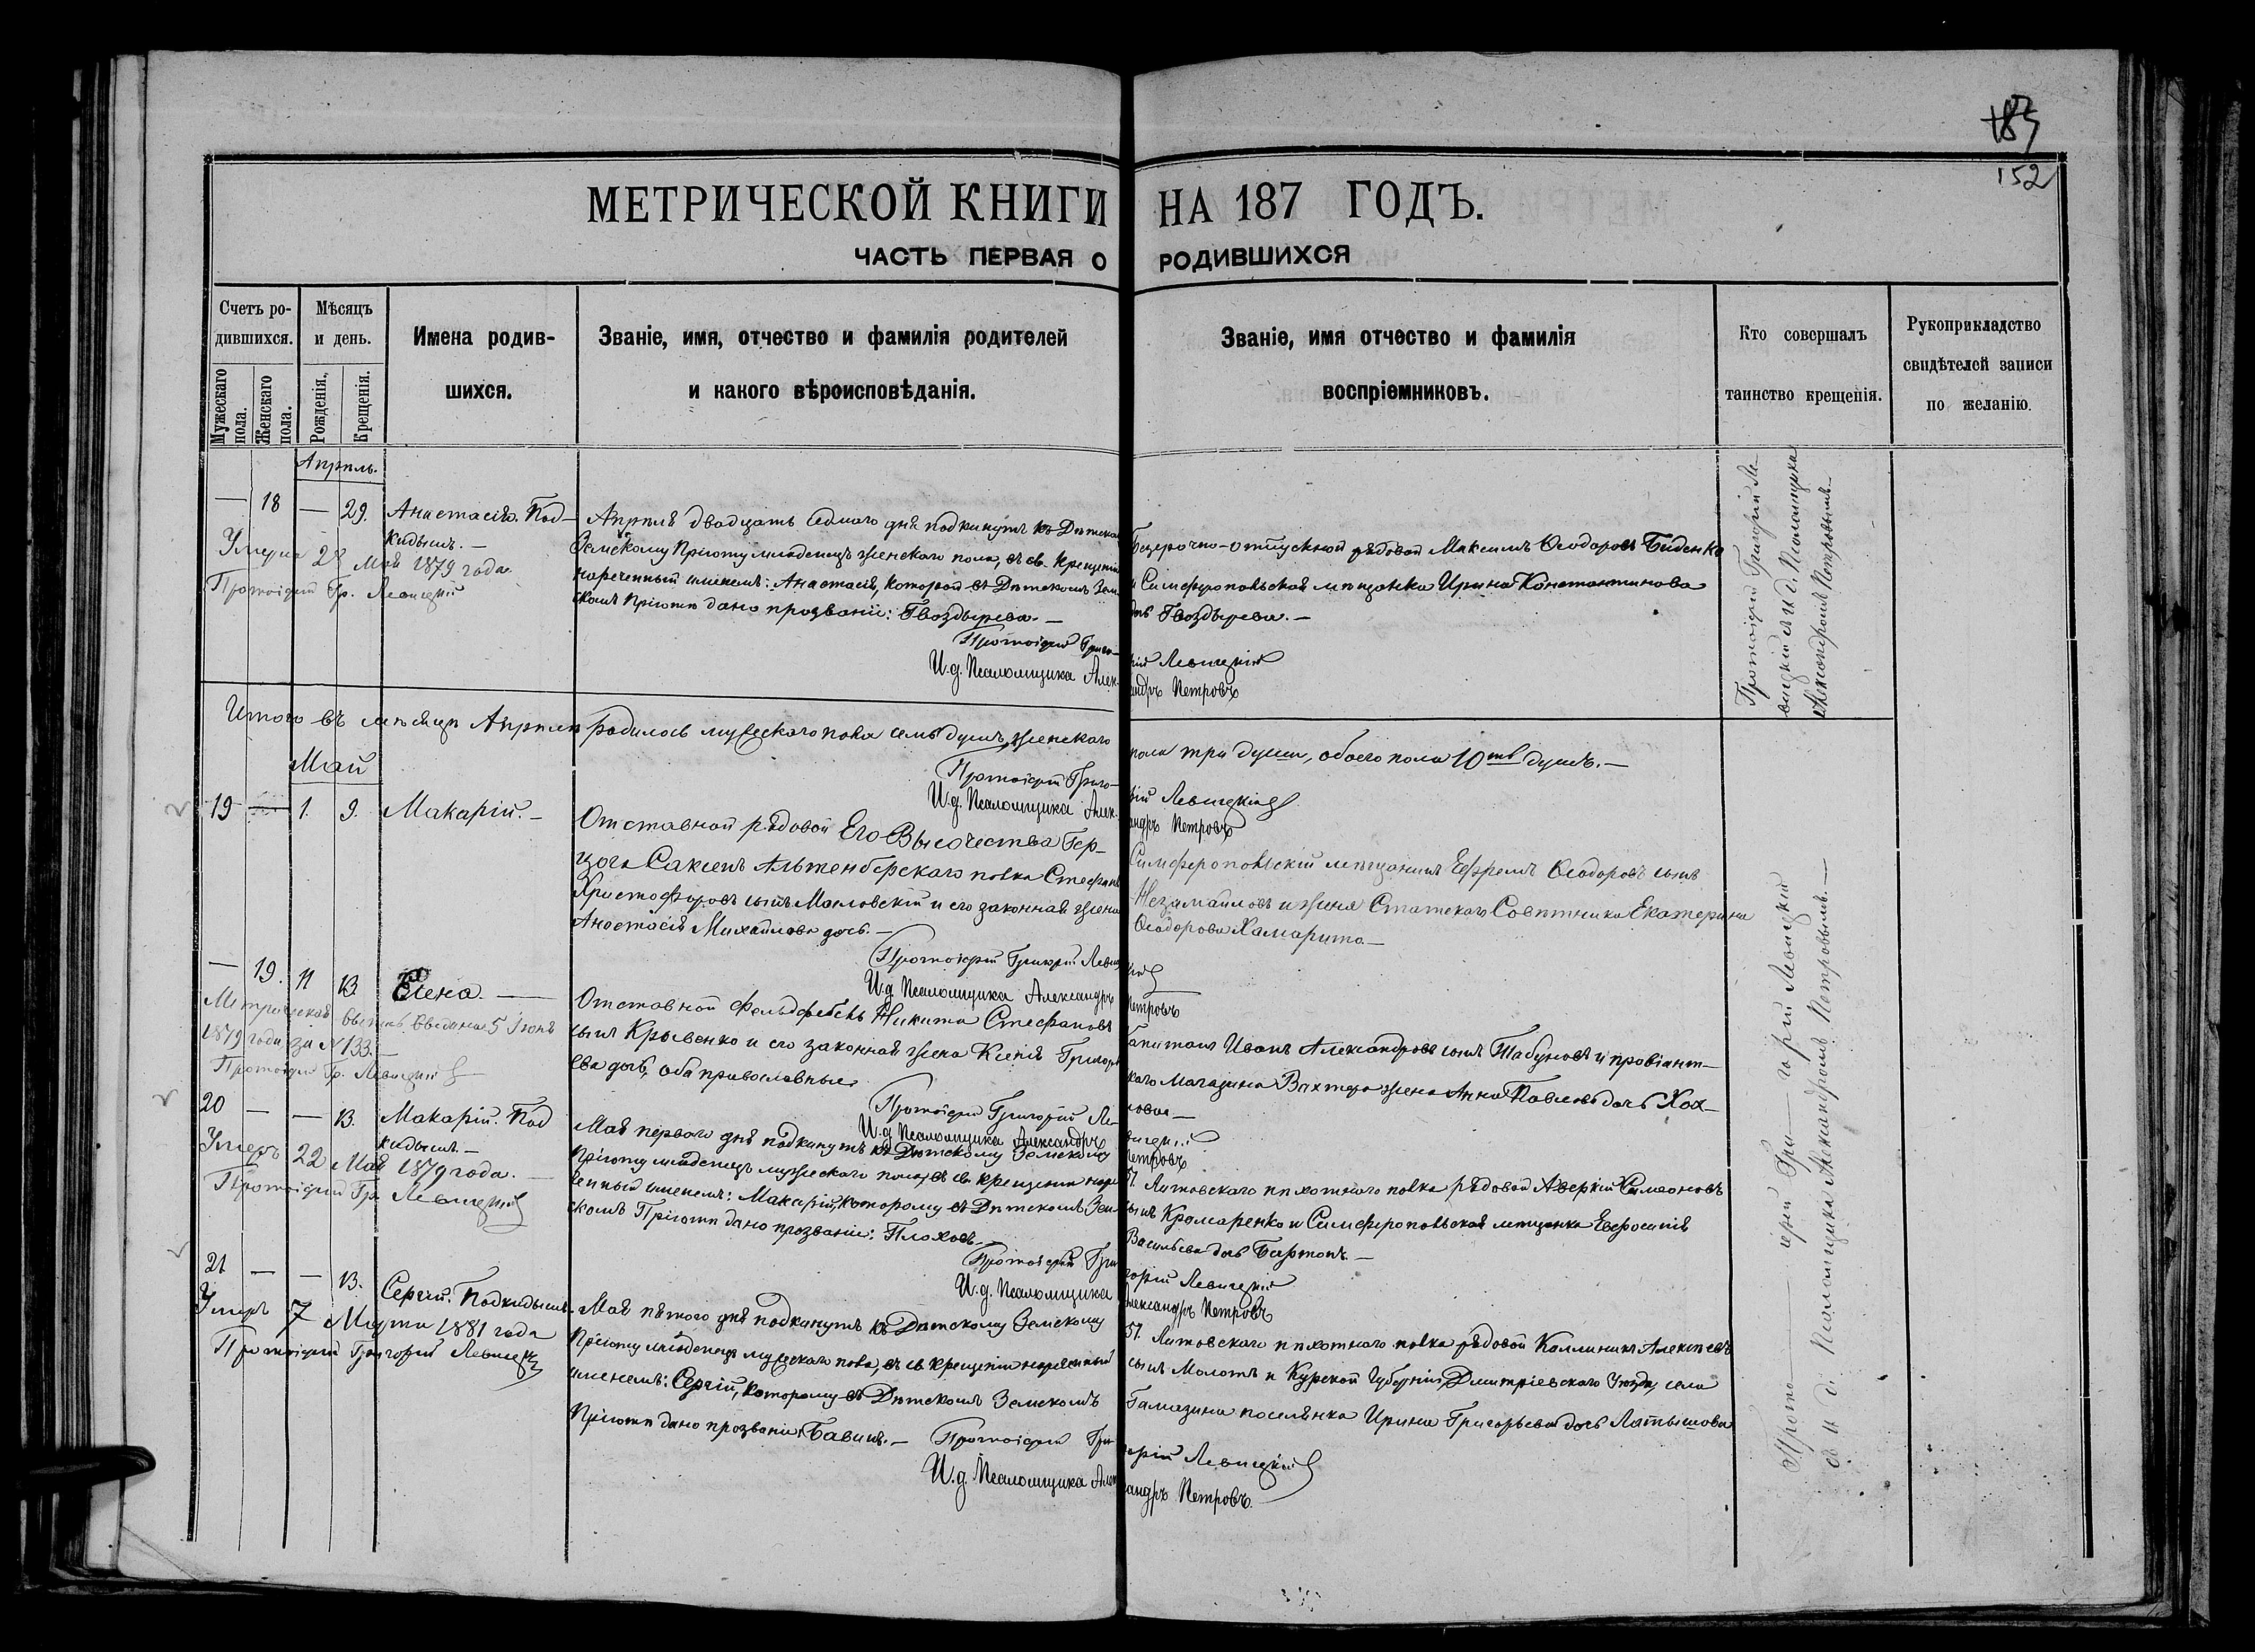 185
152
МЕТРИЧЕСКОЙ КНИГИ НА 187 ГОДЪ.
ЧАСТЬ ПЕРВАЯ О РОДИВШИХСЯ
Счетъ ро-
дившихся.
Мужескаго пола.
Женскаго пола.
Мѣсяцъ
и день.
Рожденія.
Крещенія.
Имена родив-
шихся.
Званіе, имя, отчество и фамилія родителей
и какого вѣроисповѣданія.
Званіе, имя отчество и фамилія
воспріемниковъ.
Кто совершалъ
таинство крещенія.
Рукоприкладство
свидѣтелей записи
по желанію.
Апрѣль.
— 18 — 29. Анастасія. Под-
кидышъ. —
Умерла 28 Мая 1879 года
Протоіерей Гр. Левицкій
Апрѣля двадцать седмаго дня подкинутъ къ Дѣтском
Земскому Пріюту младенецъ женскаго пола, въ св. крещеніи
нареченный именемъ: Анастасія, которой въ Дѣтскомъ Зем
скомъ Пріютѣ дано прозваніе: Гвоздырева. —
Безсрочно-отпускной рядовой Максимъ Ѳеодоровъ Биденко
и Симферопольская мѣщанка Ирина Константинова
дочь Гвоздырева. —
Протоіерей Григо-
рій Левицкій
И.д. Псаломщика Алек-
сандръ Петровъ
Протоіерей Григорій Ле-
вицкій съ и д. Псаломщика
Александромъ Петровымъ. —
Итого въ мѣсяцѣ Апрѣлѣ родилось мужескаго пола семь душъ, женскаго
пола три души, обоего пола 10ть душъ. —
Протоіерей Григо-
рій Левицкій
И.д. Псаломщика Алек-
сандръ Петровъ
Май
19 — 1. 9. Макарій. —
Отставной рядовой Его Высочества Гер-
цога Саксенъ Альтенбергскаго полка Стефанъ
Христофоровъ сынъ Масловскій и его законная жена
Анастасія Михайлова дочь. —
Симферопольскій мѣщанинъ Ефремъ Ѳеодоровъ сынъ
Незамайловъ и жена Статскаго Совѣтника Екатерина
Ѳеодорова Хамарито —
Протоіерей Григорій Левиц
кій
И.д. Псаломщика Александръ
Петровъ
— 19. 11 13 Елена. —
Метрическая выпись выдана 5 Іюня
1879 года за № 133. —
Протоіерей Гр. Левицкій
Отставной Фельдфебель Никита Стефановъ
сынъ Крывенко и его законная жена Ксенія Григорь
ева дочь, оба православные
Капитанъ Иванъ Александровъ сынъ Табуновъ и провіант-
скаго Магазина Вахтера жена Анна Павлова дочь Хох-
лова —
Протоіерей Григорій Ле-
вицкій
И.д. Псаломщика Александръ
Петровъ
20 — — 13. Макарій. Под
кидышъ. —
Умеръ 22 Мая 1879 года. —
Протоіерей Гр. Левицкій
Мая перваго дня подкинутъ къ Дѣтскому Земскому
Пріюту младенецъ мужескаго пола, въ св. крещеніи наре
ченный именемъ: Макарій, которому въ Дѣтскомъ Зем-
скомъ Пріютѣ дано прозваніе: Плоховъ. —
51. Литовскаго пѣхотнаго полка рядовой Аверкій Симеоновъ
сынъ Кромаренко и Симферопольская мѣщанка Евфросинія
Васильева дочь Бартонъ. —
Протоіерей Гри
горій Левицкій
И.д. Псаломщика
Александръ Петровъ
21 — — 13. Сергій. Подкидышъ.
Умеръ 7 Марта 1881 года
Протоіерей Григорій Левицкій
Мая пятого дня подкинутъ къ Дѣтскому Земскому
Пріюту младенецъ мужескаго пола, въ св. крещеніи нареченный
именемъ: Сергій, которому въ Дѣтскомъ Земскомъ
Пріютѣ дано прозваніе: Бавинъ. —
51. Литовскаго пѣхотнаго полка рядовой Каллиникъ Алексѣевъ
сынъ Молотъ и Курской Губерніи, Дмитріевскаго Уѣзда, села
Гамазина поселянка Ирина Григорьева дочь Латышова
Протоіерей Гри-
горій Левицкій
И.д. Псаломщика Алек
сандръ Петровъ.
Прото — іерей Гри — горій Левицкій
съ и д. Псаломщика Александромъ Петровымъ. —